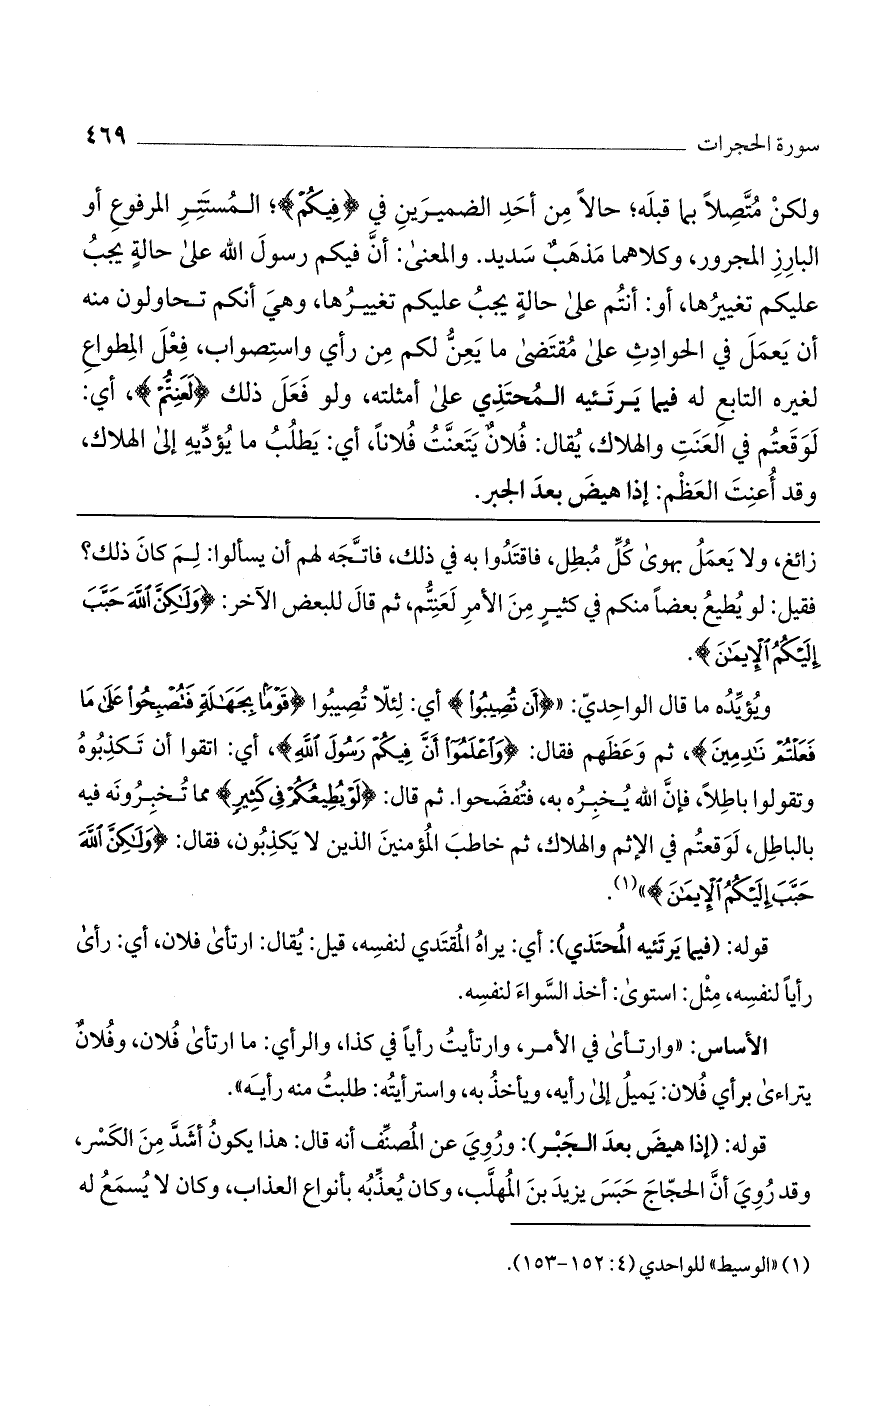 سورة الحجرات ٤٦٩
ولكنْ مُتَّصِلاً بما قبلَه؛ حالاً مِن أحَدِ الضميرَينِ في ﴿فِيكُمْ﴾؛ المُستَتِرِ المرفوعِ أو
البارِزِ المجرور، وكلاهما مَذهَبٌ سَديد. والمعنىٰ: أنَّ فيكم رسولَ الله علىٰ حالةٍ يجبُ
عليكم تغييرُها، أو: أنتُم علىٰ حالةٍ يجبُ عليكم تغييرُها، وهيَ أنكم تحاولون منه
أن يَعمَلَ في الحوادِثِ علىٰ مُقتَضىٰ ما يَعِنُّ لكم مِن رأي واستِصواب، فِعْلَ المِطواعِ
لغيره التابعِ له فيما يَرتَئيه المُحتَذِي علىٰ أمثلته، ولو فَعَلَ ذلك ﴿لَعَنِتُّمْ﴾، أي:
لَوَقَعتُم في العَنَتِ والهلاك، يُقال: فُلانٌ يَتَعنَّتُ فُلاناً، أي: يَطلُبُ ما يُؤدِّيهِ إلىٰ الهلاك،
وقد أُعنِتَ العَظْم: إذا هيضَ بعدَ الجبر.
زائغ، ولا يَعمَلُ بهوىٰ كُلِّ مُبطِل، فاقتَدُوا به في ذلك، فاتَّجَه لهم أن يسألوا: لِمَ كانَ ذلك؟
فقيل: لو يُطيعُ بعضاً منكم في كثيرٍ مِنَ الأمرِ لَعَنِتُّم، ثم قالَ للبعض الآخر: ﴿وَلَٰكِنَّ ٱللَّهَ حَبَّبَ
إِلَيْكُمُ ٱلْإِيمَٰنَ﴾.
ويُؤيِّدُه ما قال الواحِديّ: «﴿أَن تُصِيبُوا۟﴾ أي: لِئلّا تُصِيبُوا ﴿قَوْمًۢا بِجَهَٰلَةٍ فَتُصْبِحُوا۟ عَلَىٰ مَا
فَعَلْتُمْ نَٰدِمِينَ﴾، ثم وَعَظَهم فقال: ﴿وَٱعْلَمُوٓا۟ أَنَّ فِيكُمْ رَسُولَ ٱللَّهِ﴾، أي: اتقوا أن تَكذِبُوهُ
وتقولوا باطِلاً، فإنَّ الله يُخبِرُه به، فتُفضَحوا. ثم قال: ﴿لَوْ يُطِيعُكُمْ فِى كَثِيرٍ﴾ مما تُخبِرُونَه فيه
بالباطِل، لَوَقعتُم في الإثم والهلاك، ثم خاطبَ المُؤمنينَ الذين لا يَكذِبُون، فقال: ﴿وَلَٰكِنَّ ٱللَّهَ
حَبَّبَ إِلَيْكُمُ ٱلْإِيمَٰنَ﴾»(١).
قوله: (فيما يَرتَئيه المُحتَذي): أي: يراهُ المُقتَدي لنفسِه، قيل: يُقال: ارتأىٰ فلان، أي: رأىٰ
رأياً لنفسِه، مِثْل: استوىٰ: أخذ السَّواءَ لنفسِه.
الأساس: «وارتأىٰ في الأمر، وارتأيتُ رأياً في كذا، والرأي: ما ارتأىٰ فُلان، وفُلانٌ
يتراءىٰ برأي فُلان: يَميلُ إلىٰ رأيه، ويأخذُ به، واسترأيتُه: طلبتُ منه رأيَه».
قوله: (إذا هيضَ بعدَ الجَبْر): ورُوِيَ عن المُصنِّف أنه قال: هذا يكونُ أشدَّ مِنَ الكَسْر،
وقد رُوِيَ أنَّ الحجّاجَ حَبَسَ يزيدَ بنَ المُهلَّب، وكان يُعذِّبُه بأنواع العذاب، وكان لا يُسمَعُ له
(١) «الوسيط» للواحدي (٤: ١٥٢-١٥٣).